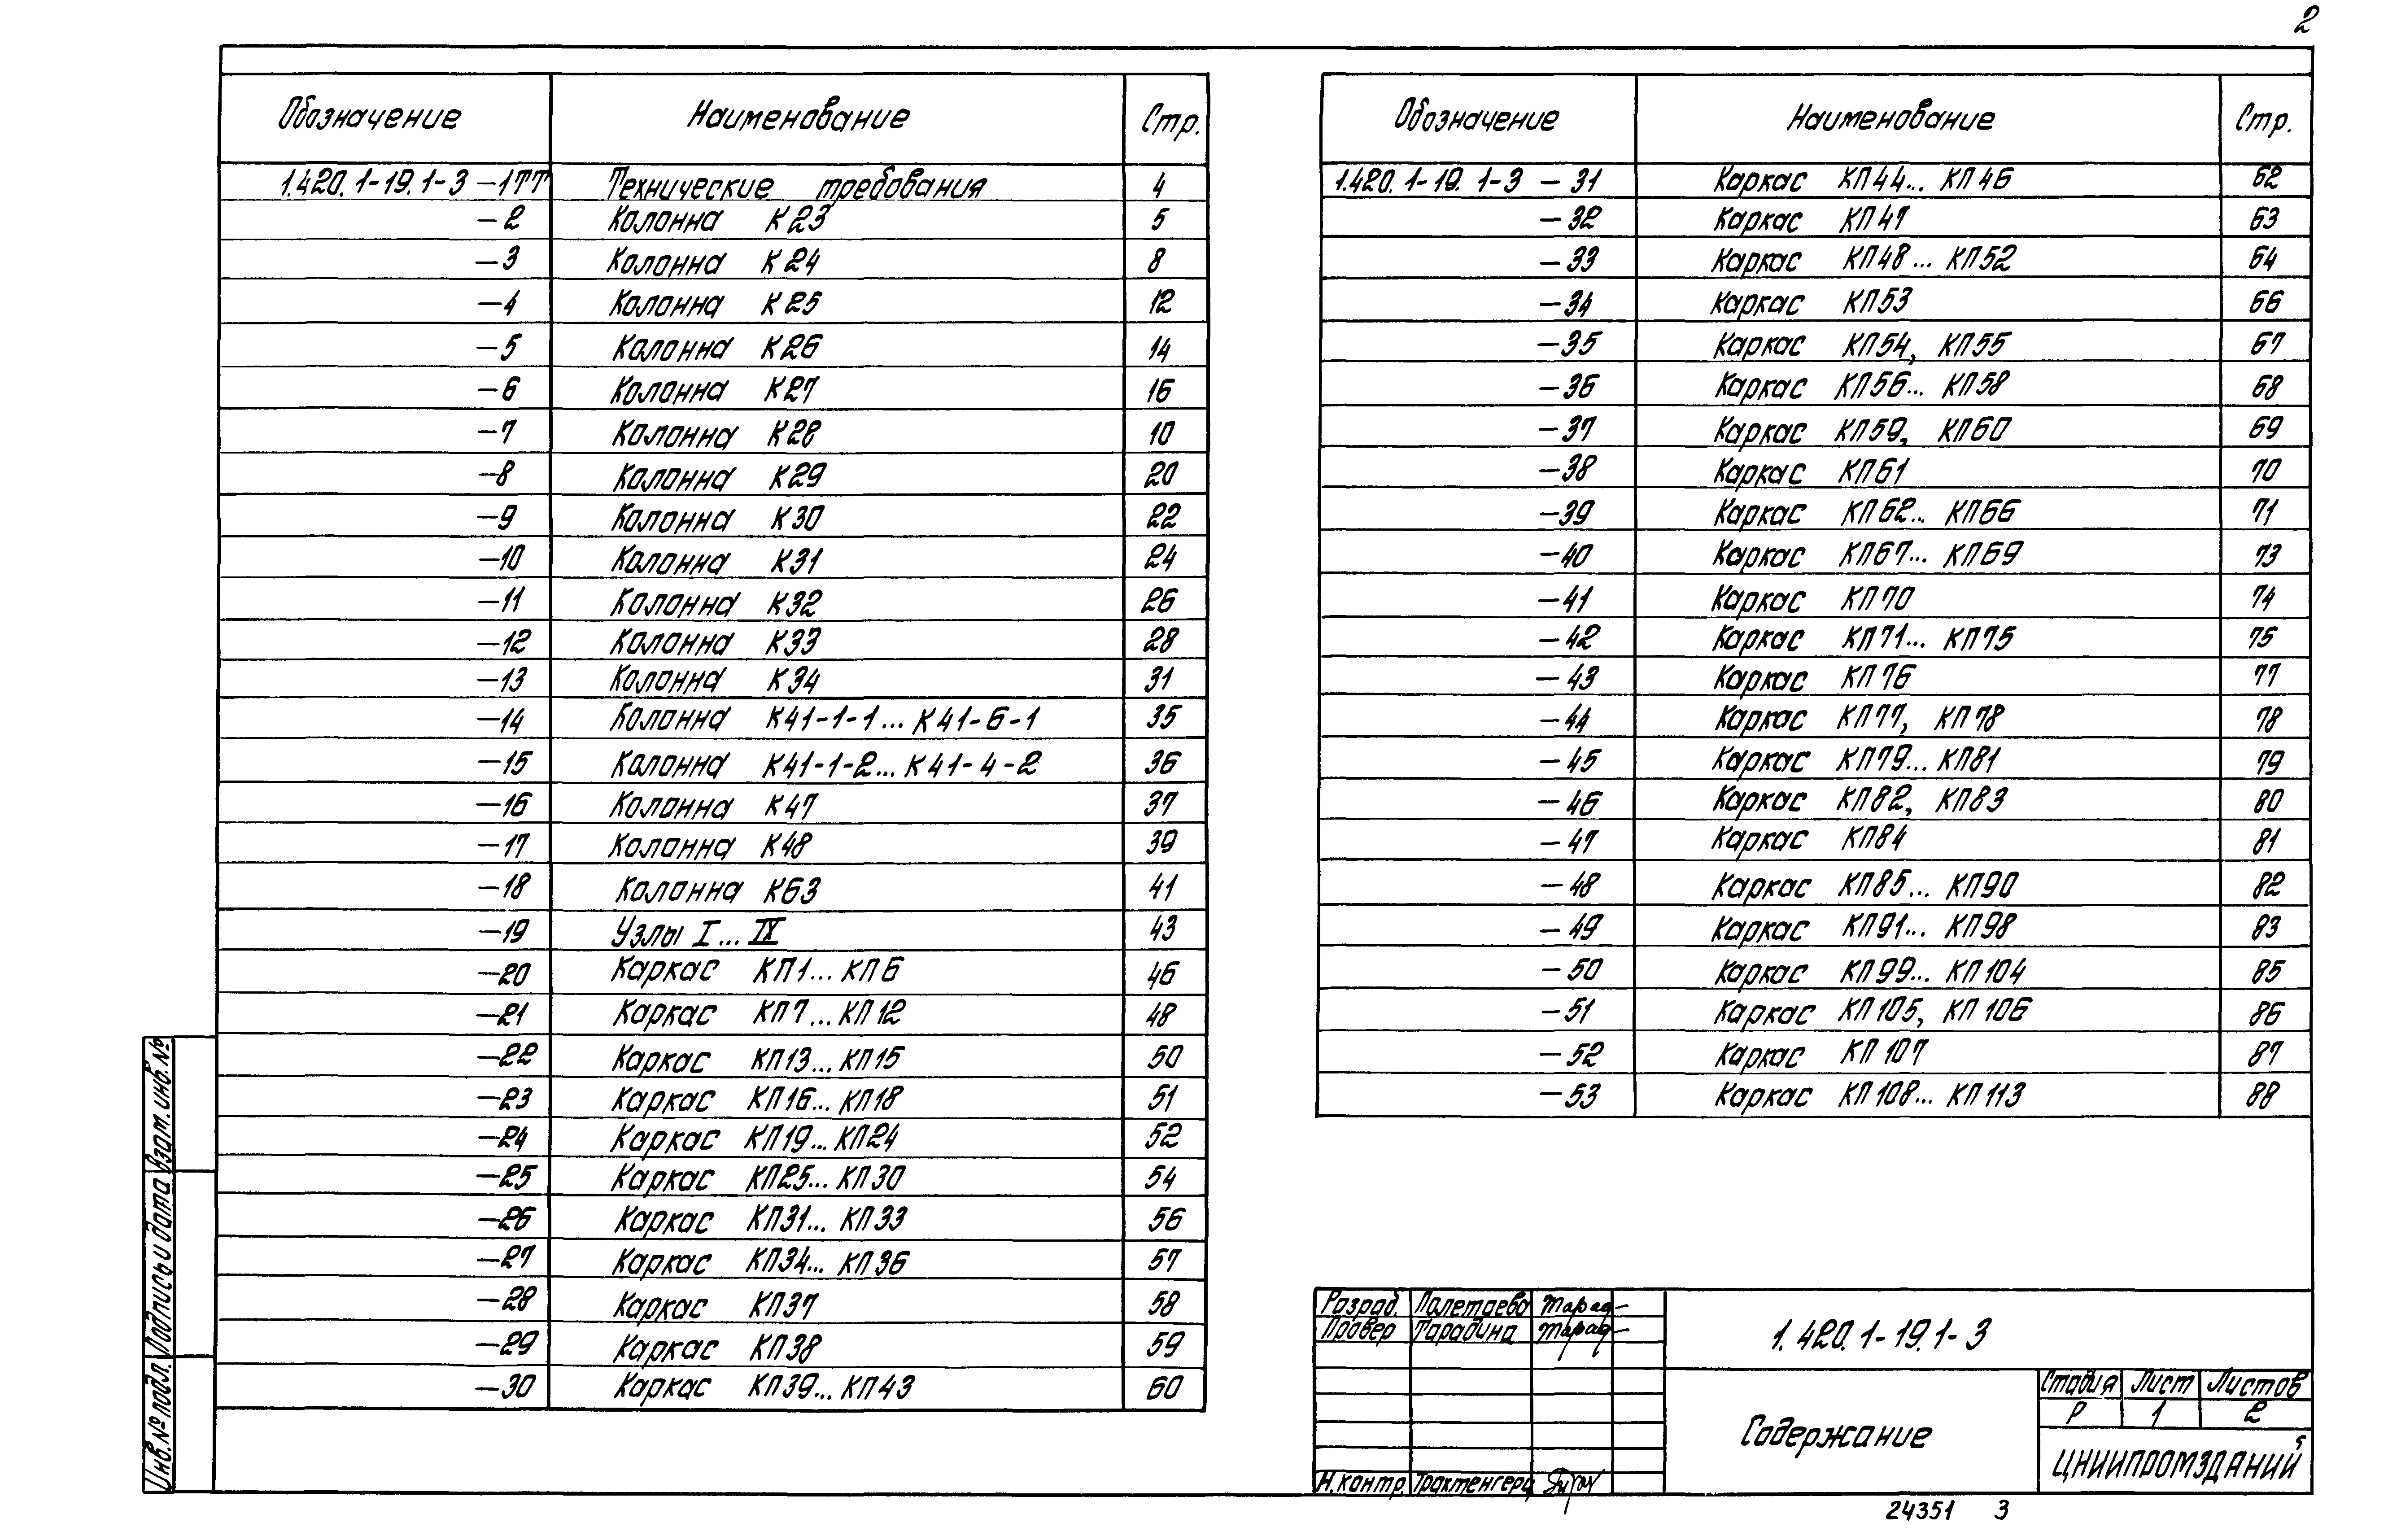 2
Обозначение Наименование Стр.
1.420.1-19.1-3 -1ТТ Технические требования 4
-2 Колонна К23 5
-3 Колонна К24 8
-4 Колонна К25 12
-5 Колонна К26 14
-6 Колонна К27 16
-7 Колонна К28 10
-8 Колонна К29 20
-9 Колонна К30 22
-10 Колонна К31 24
-11 Колонна К32 26
-12 Колонна К33 28
-13 Колонна К34 31
-14 Колонна К41-1-1... К41-6-1 35
-15 Колонна К41-1-2... К41-4-2 36
-16 Колонна К47 37
-17 Колонна К48 39
-18 Колонна К63 41
-19 Узлы I... IX 43
-20 Каркас КП1... КП6 46
-21 Каркас КП7... КП12 48
-22 Каркас КП13... КП15 50
-23 Каркас КП16... КП18 51
-24 Каркас КП19... КП24 52
-25 Каркас КП25... КП30 54
-26 Каркас КП31... КП33 56
-27 Каркас КП34... КП36 57
-28 Каркас КП37 58
-29 Каркас КП38 59
-30 Каркас КП39... КП43 60
Обозначение Наименование Стр.
1.420.1-19.1-3 -31 Каркас КП44... КП46 62
-32 Каркас КП47 63
-33 Каркас КП48... КП52 64
-34 Каркас КП53 66
-35 Каркас КП54, КП55 67
-36 Каркас КП56... КП58 68
-37 Каркас КП59, КП60 69
-38 Каркас КП61 70
-39 Каркас КП62... КП66 71
-40 Каркас КП67... КП69 73
-41 Каркас КП70 74
-42 Каркас КП71... КП75 75
-43 Каркас КП76 77
-44 Каркас КП77, КП78 78
-45 Каркас КП79... КП81 79
-46 Каркас КП82, КП83 80
-47 Каркас КП84 81
-48 Каркас КП85... КП90 82
-49 Каркас КП91... КП98 83
-50 Каркас КП99... КП104 85
-51 Каркас КП105, КП106 86
-52 Каркас КП107 87
-53 Каркас КП108... КП113 88
Взам. инв. №
Подпись и дата
Инв. № подл.
Разраб. Полетаева
Провер Тарадина
Н.контр. Трахтенгерц
1.420.1-19.1-3
Содержание
Стадия Лист Листов
Р 1 2
ЦНИИПРОМЗДАНИЙ
24351 3